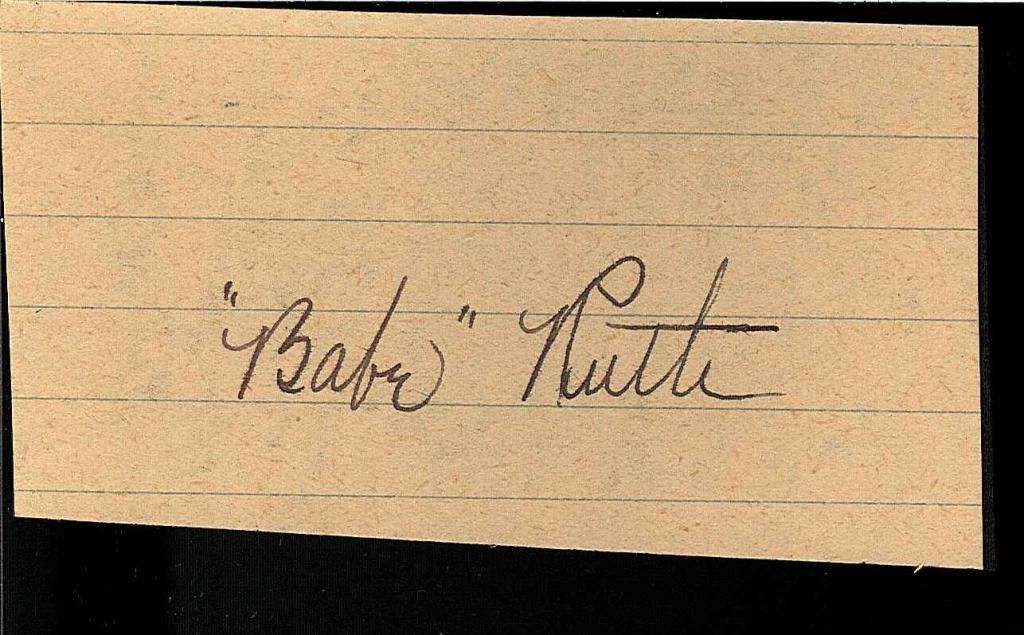 "Babe" Ruth